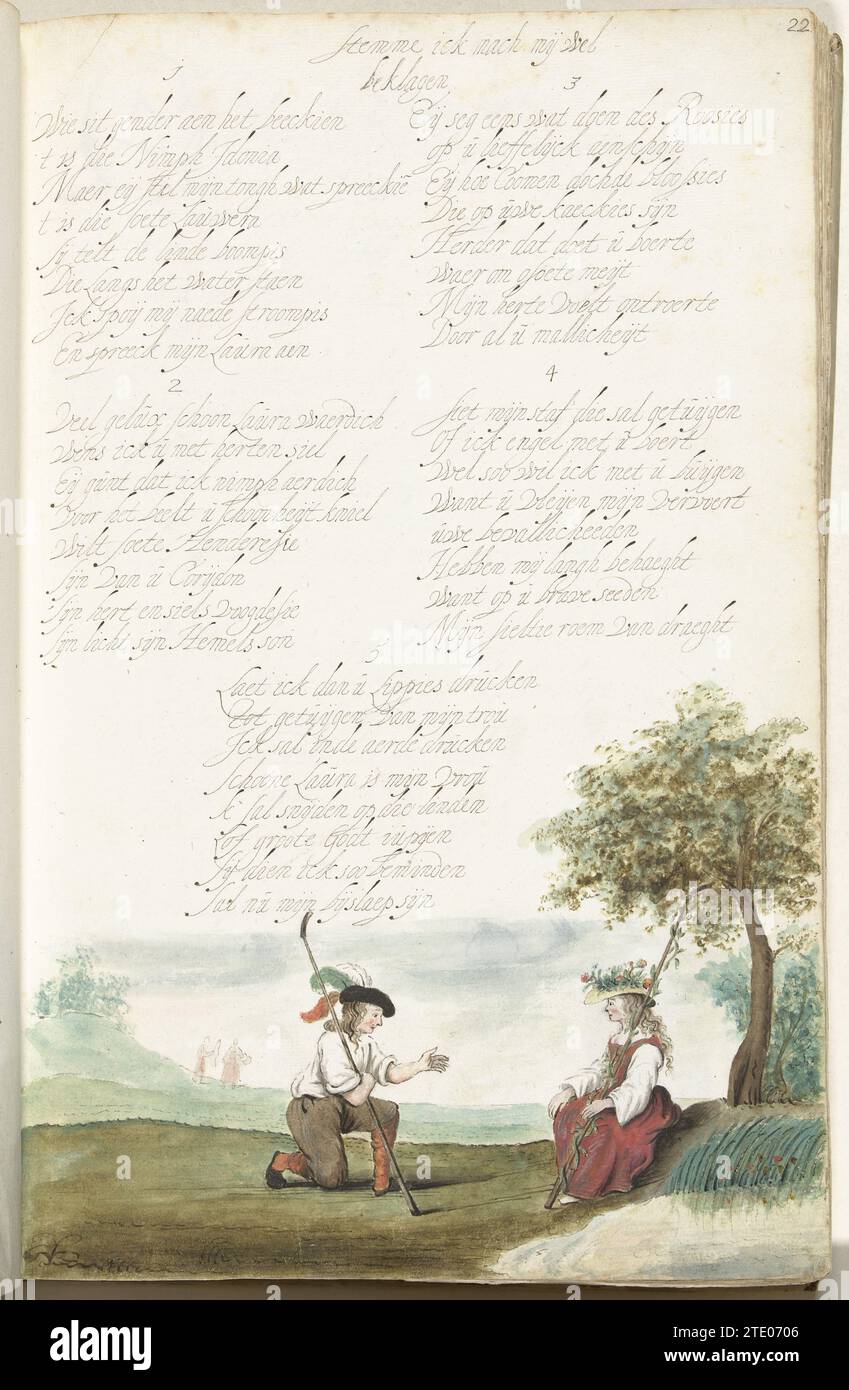 22
Stemme ick mach mij wel
beklagen
1
Wie sit gender aen het beeckien
t is die Nimph Jaonia
Maer eij stil mijn tongh wat spreeckie
t is die soete Lauwera
sij telt de linde boompis
Die Langs het water staen
Ick spoij mij naede stroompis
En spreeck mijn Laura aen
2
Veel gelux schoon Laura waerdich
Wens ick u met herten siel
Eij gunt dat ick nimph aerdich
Voor het beelt u schoonheijt kniel
Wilt soete Henderesie
sijn van u Corijdon
sijn hert en siels voogdesie
sijn licht sijn Hemels son
3
Eij seg eens wat doen des Roosies
op u lieffelijck aenschijn
Eij hoe Coomen doch de bloosies
Die op uwe kaeckies sijn
Herder dat doet u boerte
Waer om o soete meijt
Mijn herte voelt ontroerte
Door al u mallicheijt
4
siet mijn staf die sal getuijgen
Of ick engel met u boert
Wel soo wil ick met u buijgen
Want u vleijen mijn vervoert
uwe bevallicheeden
Hebben mij langh behaeght
Want op u brave seeden
Mijn sieltie roem van draeght
5
Laet ick dan u Lippies drucken
Tot getuijgen van mijn trou
Ick sal inde aerde drucken
Schoone Laura is mijn vrou
k sal snijden op die linden
Lof groote Godt
sij dien ick soo beminden
sal nu mijn bijslaep sijn
alamy
Image ID: 2TE0706
www.alamy.com